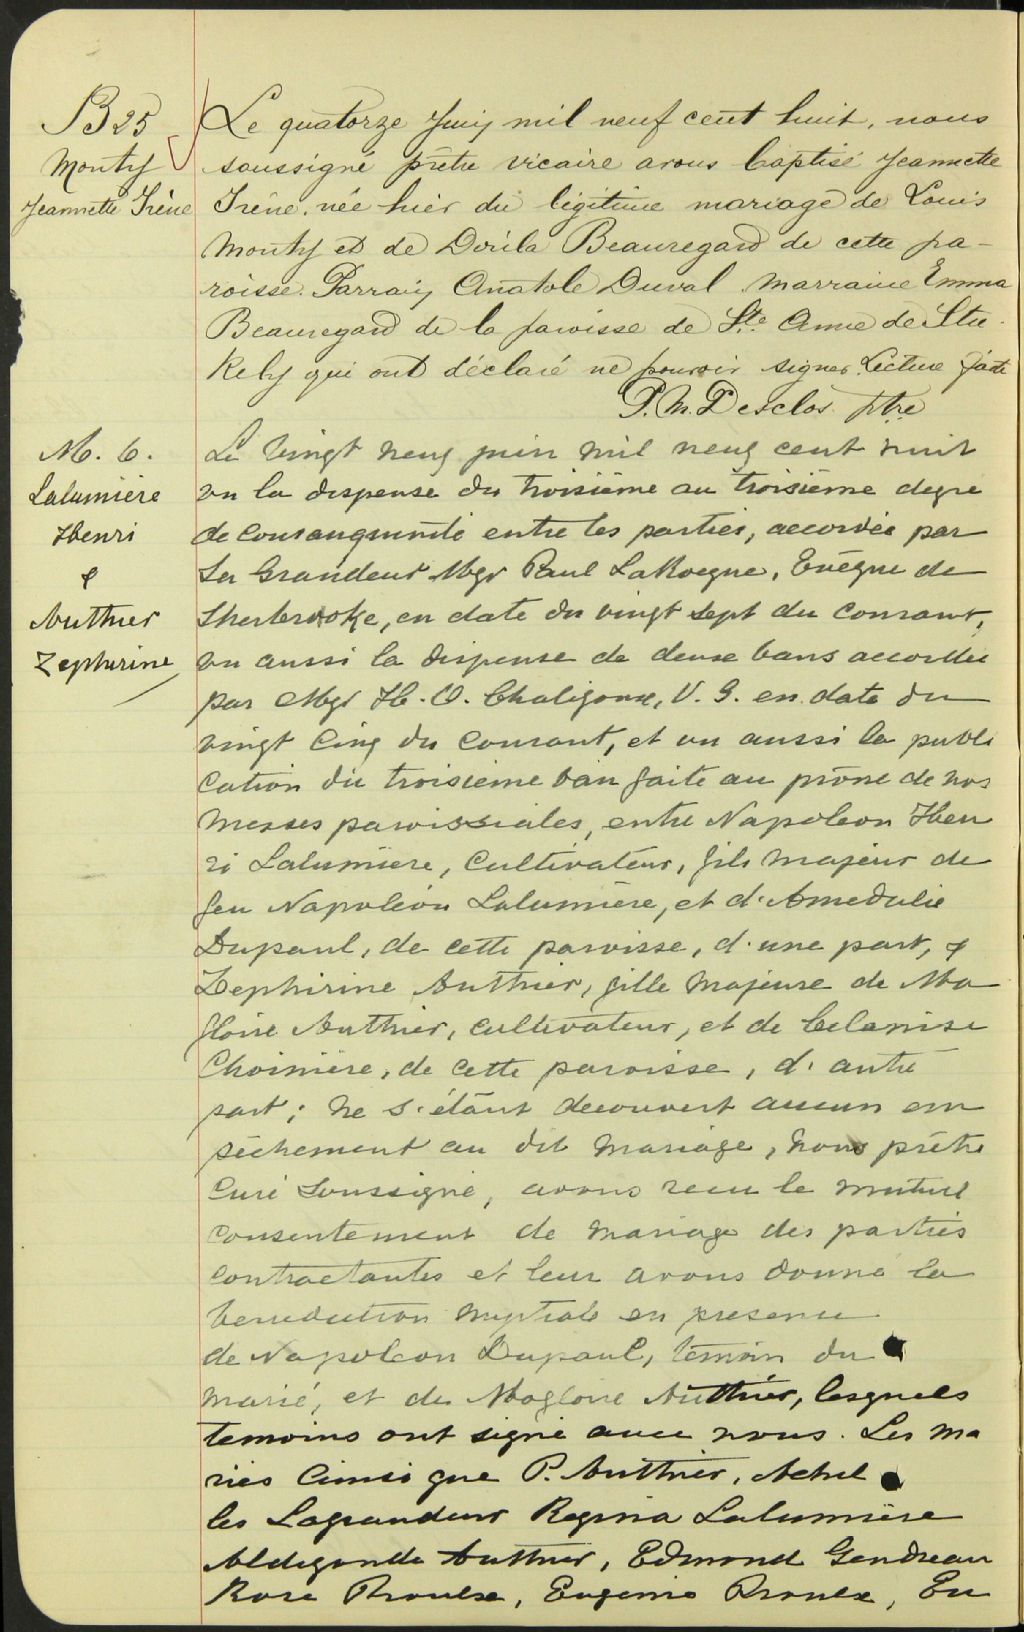 B 25
Monty
Jeannette Irène
Le quatorze Juin mil neuf cent huit, nous
soussigné prêtre vicaire avons baptisé Jeannette
Irène, née hier du légitime mariage de Louis
Monty et de Dorila Beauregard de cette pa-
roisse. Parrain Anatole Duval Marraine Emma
Beauregard de la paroisse de Ste Anne de Stu-
kely qui ont déclaré ne pouvoir signer. Lecture faite
P. M. Desclos ptre
M. 6.
Lalumière
Henri
&
Authier
Zephirine
Le vingt neuf juin mil neuf cent huit
vu la dispense du troisième au troisième degre
de consanguinité entre les parties, accordée par
Sa Grandeur Mgr Paul LaRocque, Evêque de
Sherbrooke, en date du vingt sept du courant,
vu aussi la dispense de deux bans accordée
par Mgr H. O. Chalifoux, V. G. en date du
vingt cinq du courant, et vu aussi la publi
cation du troisième ban faite au prône de nos
messes paroissiales, entre Napoleon Hen
ri Lalumière, cultivateur, fils majeur de
feu Napoléon Lalumière, et d'Amedulie
Dupaul, de cette paroisse, d'une part, &
Zephirine Authier, fille majeure de Ma
gloire Authier, cultivateur, et de Celanise
Choinière, de cette paroisse, d'autre
part; ne s'étant decouvert aucun em
pêchement au dit mariage, nous prêtre
Curé soussigné, avons recu le mutuel
consentement de mariage des parties
contractantes et leur avons donné la
benediction nuptiale en presence
de Napoleon Dupaul, témoin du
marié, et de Magloire Authier, lesquels
temoins ont signé avec nous. Les ma
riés ainsi que P. Authier, Achil
les Lagrandeur Regina Lalumière
Aldegonde Authier, Edmond Gendreau
Rose Proulx, Eugenie Proulx, Eu